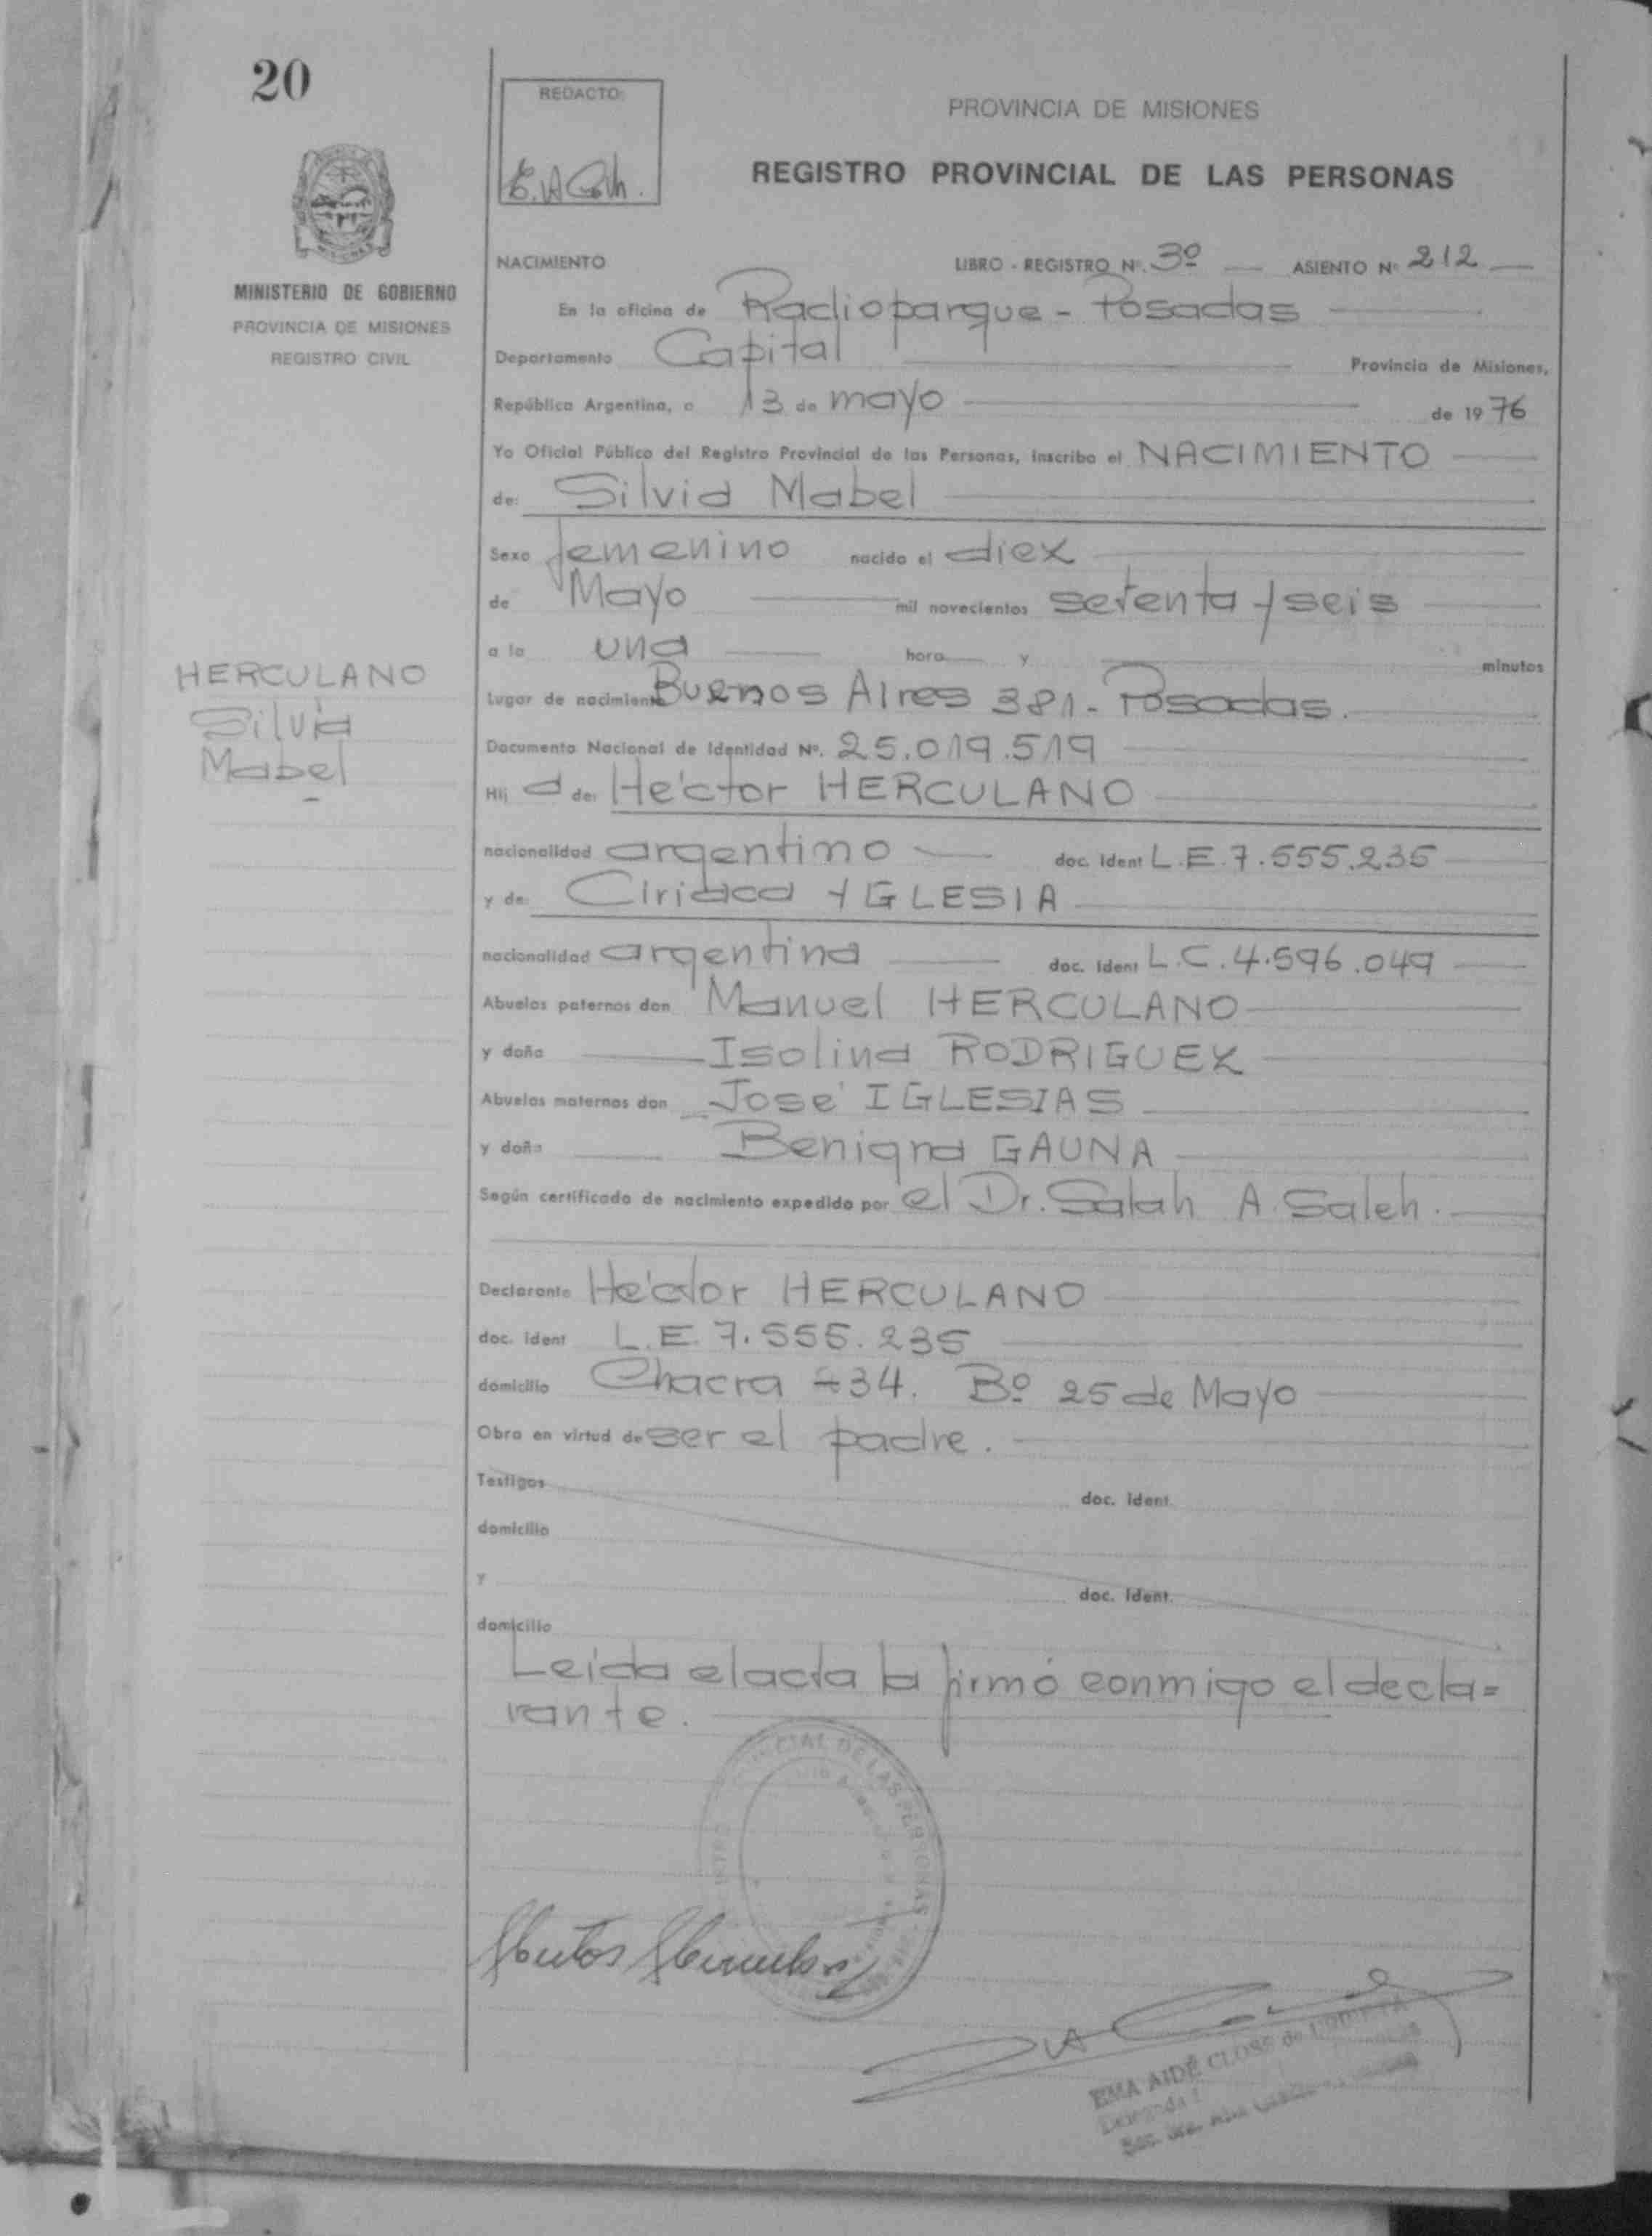 20
REDACTO:
PROVINCIA DE MISIONES
REGISTRO PROVINCIAL DE LAS PERSONAS
MINISTERIO DE GOBIERNO
PROVINCIA DE MISIONES
REGISTRO CIVIL
HERCULANO
Silvia
Mabel
NACIMIENTO LIBRO - REGISTRO Nº. 3º ASIENTO Nº 212
En la oficina de Radioparque - Posadas
Departamento Capital Provincia de Misiones,
República Argentina, a 13 de mayo de 1976
Yo Oficial Público del Registro Provincial de las Personas, inscribo el NACIMIENTO
de: Silvia Mabel
Sexo femenino nacido el diez
de Mayo mil novecientos setenta y seis
a la una hora y minutos
Lugar de nacimiento Buenos Aires 381 - Posadas.
Documento Nacional de Identidad Nº. 25.019.519
Hij a de: Héctor HERCULANO
nacionalidad argentino doc. ident L.E. 7.555.235
y de: Ciriaca YGLESIA
nacionalidad argentina doc. ident L.C. 4.596.049
Abuelos paternos don Manuel HERCULANO
y doña Isolina RODRIGUEZ
Abuelos maternos don José IGLESIAS
y doña Benigna GAUNA
Según certificado de nacimiento expedido por el Dr. Salah A. Saleh.
Declarante Héctor HERCULANO
doc. ident L.E. 7.555.235
domicilio Chacra #34. Bº 25 de Mayo
Obra en virtud de ser el padre.
Testigos doc. ident.
domicilio
y doc. ident.
domicilio
Leida el acta la firmó conmigo el decla=
rante.
CIAL DE LAS PERSONAS
EMA AIDÉ CLOSS de